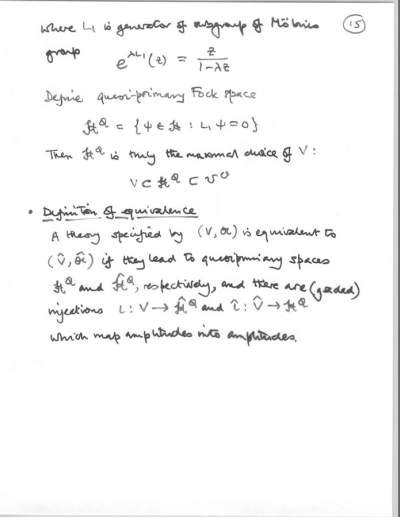 where L₁ is generator of subgroup of Möbius (15)
group e^{λL₁}(z) = z / (1-λz)
Define quasi-primary Fock space
ℋ^Q = {ψ ∈ ℋ : L₁ψ = 0}
Then ℋ^Q is truly the maximal choice of V :
V ⊂ ℋ^Q ⊂ V^O
• Definition of equivalence
A theory specified by (V, α) is equivalent to
(V̂, α̂) if they lead to quasiprimary spaces
ℋ^Q and ℋ̂^Q, respectively, and there are (graded)
injections ι : V → ℋ̂^Q and ι̂ : V̂ → ℋ^Q
which map amplitudes into amplitudes.